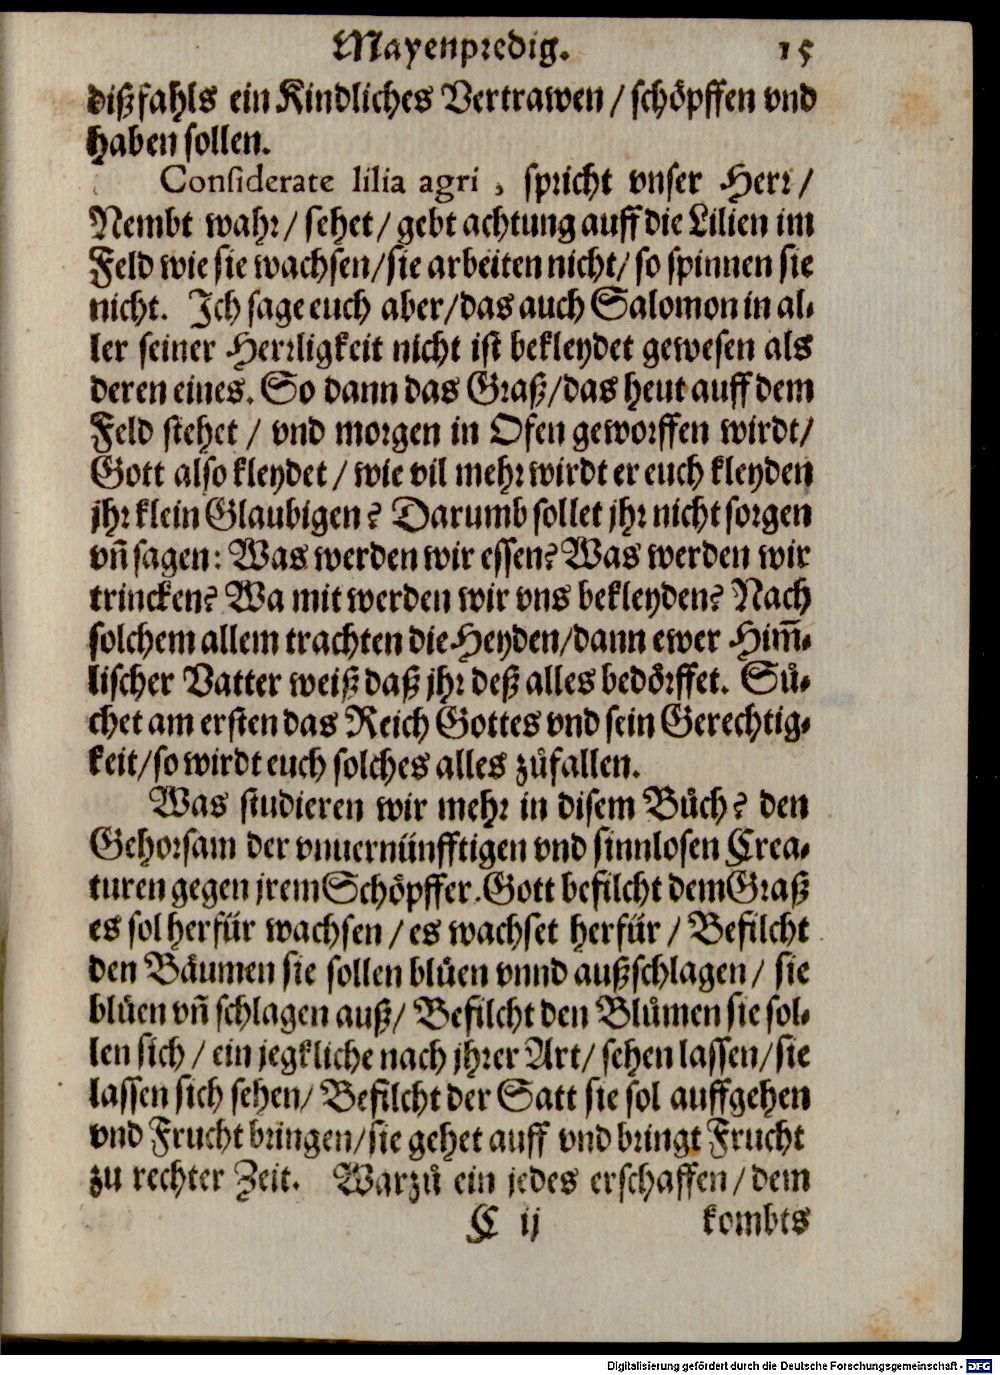 Mayenpredig. 15
dißfahls ein Kindliches Vertrawen / schöpffen vnd
haben sollen.
Considerate lilia agri , spricht vnser Herr /
Nembt wahr / sehet / gebt achtung auff die Lilien im
Feld wie sie wachsen / sie arbeiten nicht / so spinnen sie
nicht. Ich sage euch aber / das auch Salomon in al-
ler seiner Herrligkeit nicht ist bekleydet gewesen als
deren eines. So dann das Graß / das heut auff dem
Feld stehet / vnd morgen in Ofen geworffen wirdt /
Gott also kleydet / wie vil mehr wirdt er euch kleyden
jhr klein Glaubigen? Darumb sollet jhr nicht sorgen
vñ sagen: Was werden wir essen? Was werden wir
trincken? Wa mit werden wir vns bekleyden? Nach
solchem allem trachten die Heyden / dann ewer Him̄-
lischer Vatter weiß daß jhr deß alles bedörffet. Sů-
chet am ersten das Reich Gottes vnd sein Gerechtig-
keit / so wirdt euch solches alles zůfallen.
Was studieren wir mehr in disem Bůch? den
Gehorsam der vnuernünfftigen vnd sinnlosen Crea-
turen gegen jrem Schöpffer. Gott befilcht dem Graß
es sol herfür wachsen / es wachset herfür / Befilcht
den Bäumen sie sollen blüen vnnd außschlagen / sie
blüen vñ schlagen auß / Befilcht den Blůmen sie sol-
len sich / ein jegkliche nach jhrer Art / sehen lassen / sie
lassen sich sehen / Befilcht der Satt sie sol auffgehen
vnd Frucht bringen / sie gehet auff vnd bringt Frucht
zu rechter Zeit. Warzů ein jedes erschaffen / dem
C ij kombts
Digitalisierung gefördert durch die Deutsche Forschungsgemeinschaft - DFG